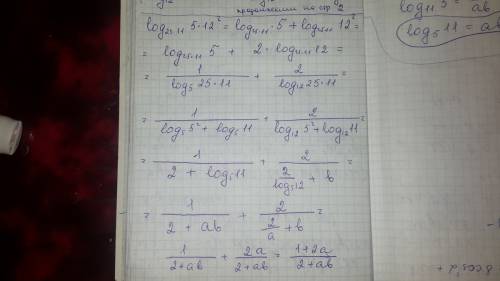 продолжение на стр 2
log₂₅.₁₁ 5·12² = log₂₅.₁₁ 5 + log₂₅.₁₁ 12² =
= log₂₅.₁₁ 5 + 2·log₂₅.₁₁ 12 =
= 1/(log₅ 25·11) + 2/(log₁₂ 25·11) =
= 1/(log₅ 5² + log₅ 11) + 2/(log₁₂ 5² + log₁₂ 11)
= 1/(2 + log₅ 11) + 2/(2/(log₅ 12) + b) =
= 1/(2 + ab) + 2/(2/a + b) =
1/(2+ab) + 2a/(2+ab) = (1+2a)/(2+ab)
= ab
log₅ 11 = ab